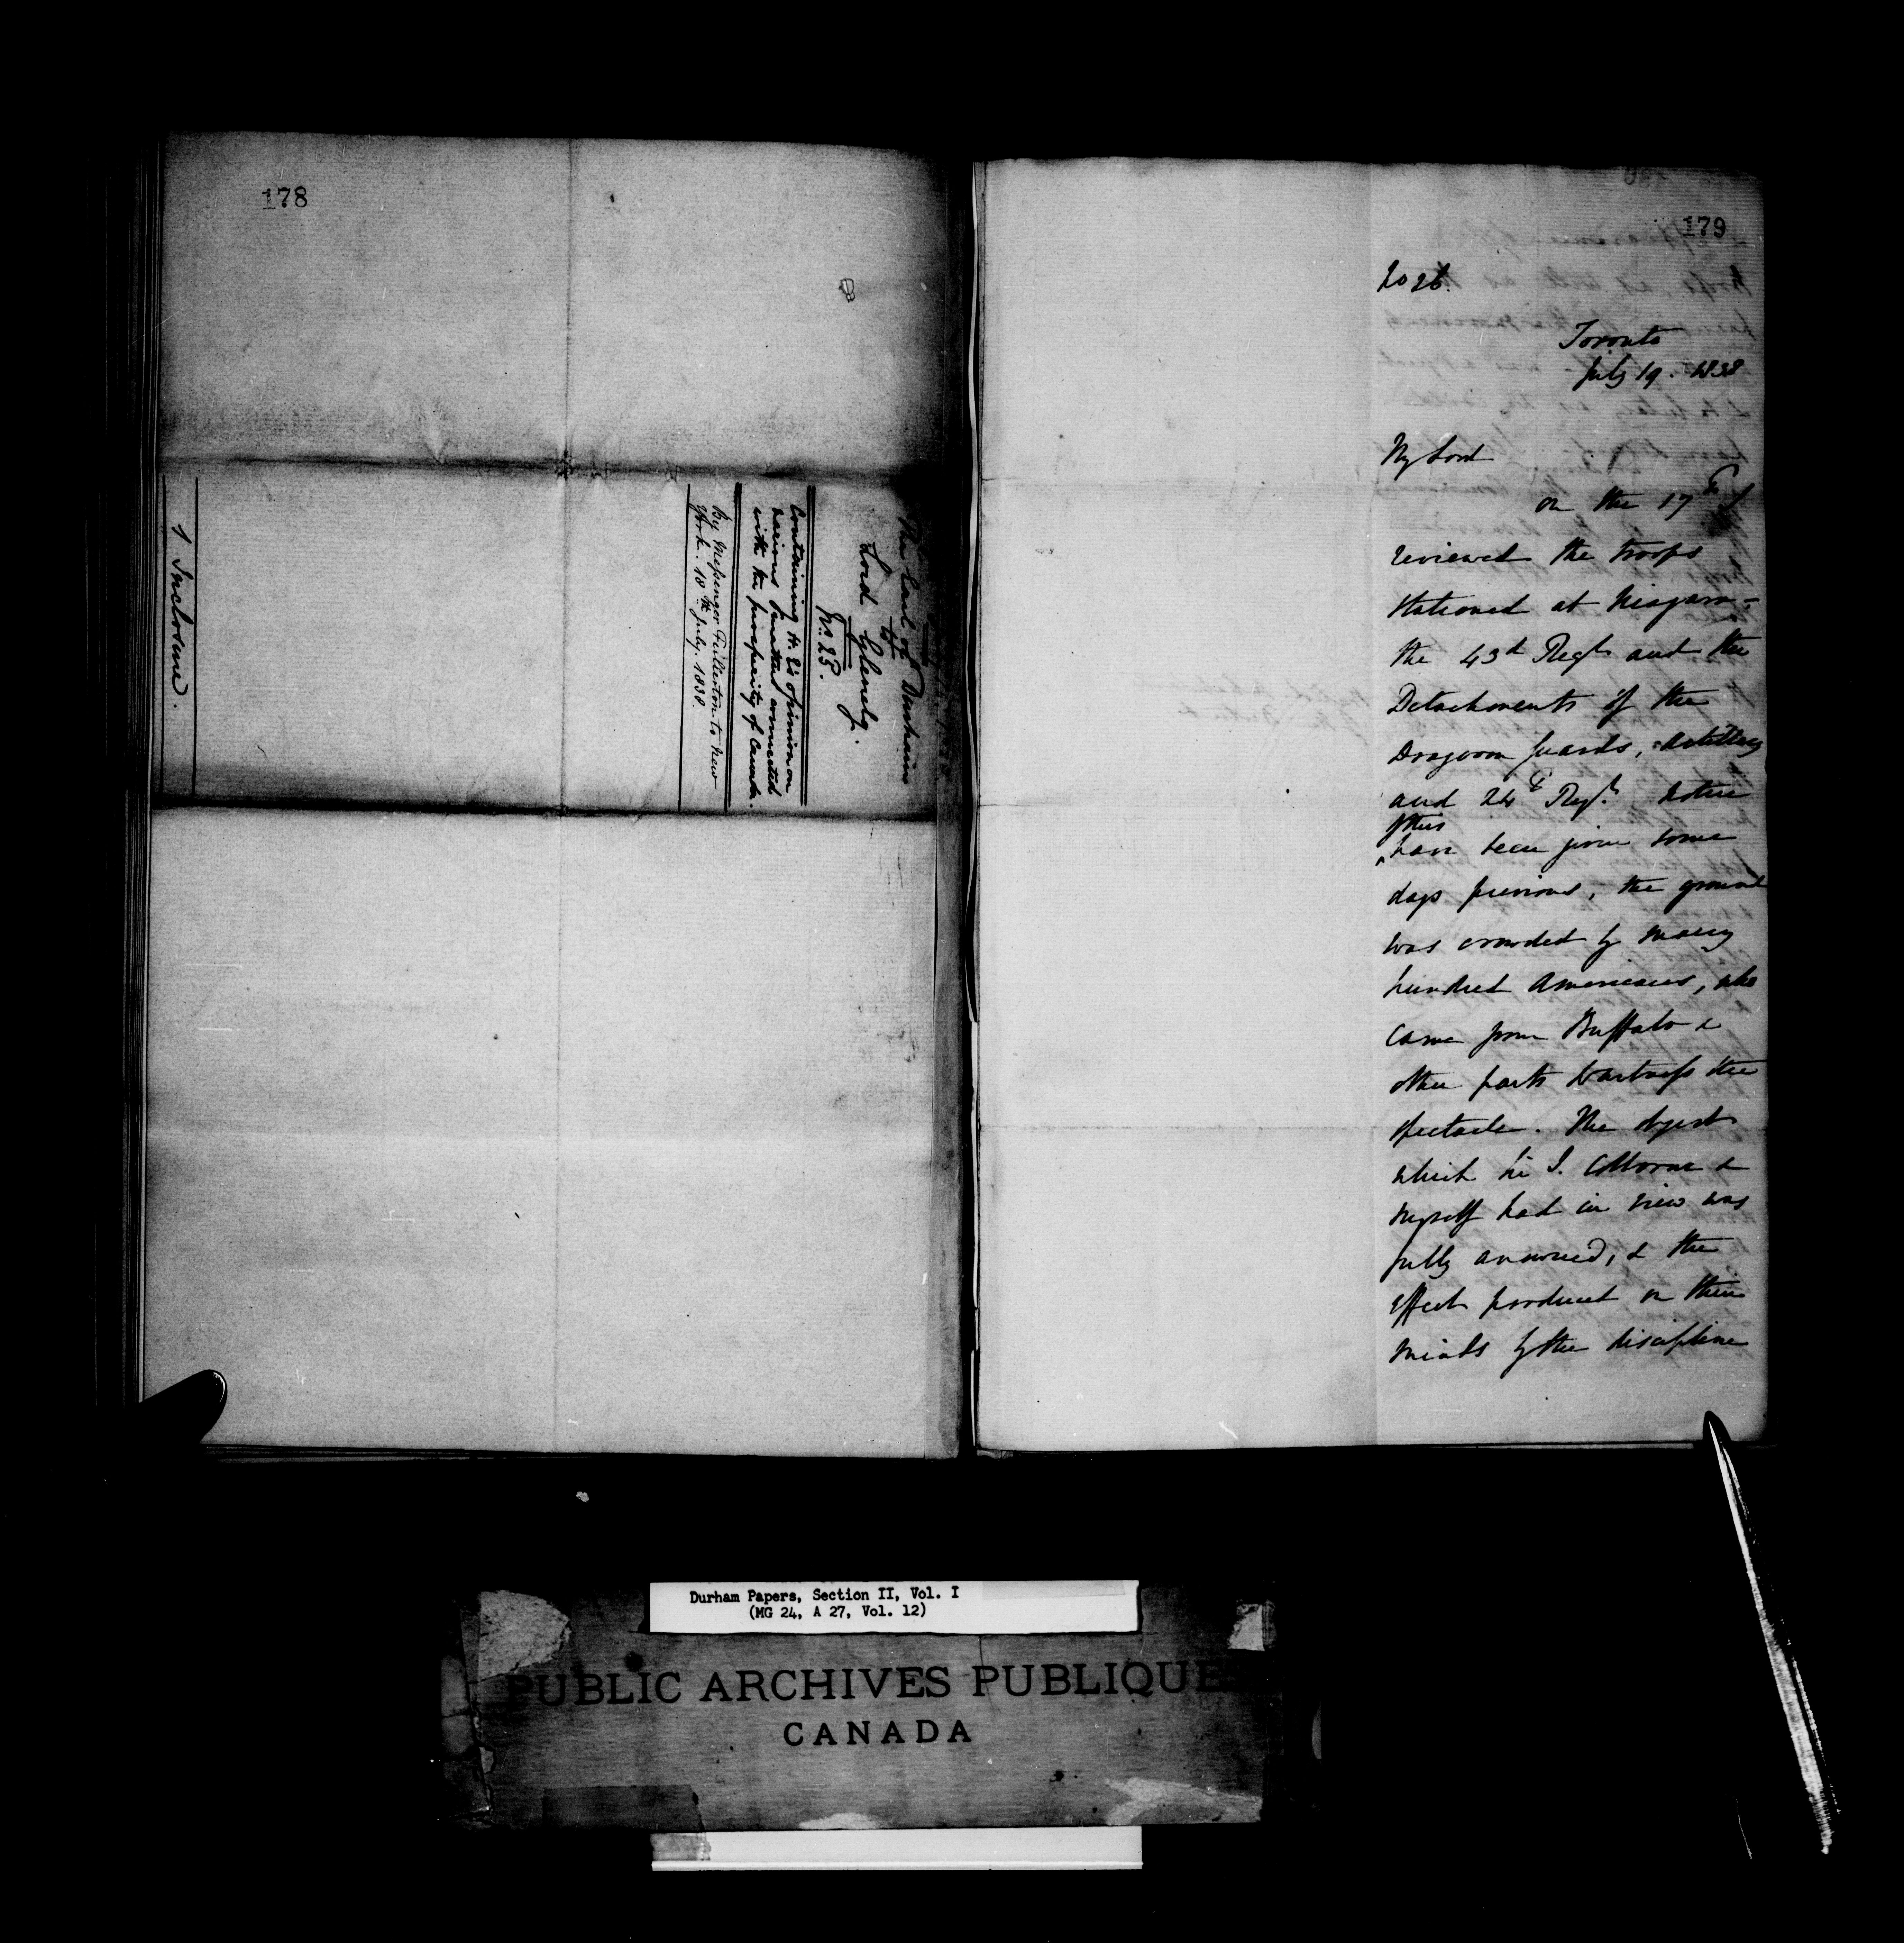 178
The Earl of Durham
to
Lord Glenelg.
No. 23.
Containing H. E's opinion on
various matters connected
with the prosperity of Canada.
By Messenger Fullerton to New
York. 18th July. 1838.
1 Inclosure.
179
No 26.
Toronto
July 19. 1838
My Lord
On the 17th I
reviewed the troops
stationed at Niagara -
the 43d Regt and the
Detachments of the
Dragoon Guards, Artillery
and 24th Regt. Notice
of this
having been given some
days previous, the ground
was crowded by many
hundred Americans, who
came from Buffalo &
other parts to witness the
spectacle. The object
which Sir J. Colborne &
myself had in view was
fully answered, & the
effect produced on their
minds by the discipline
Durham Papers, Section II, Vol. I
(MG 24, A 27, Vol. 12)
PUBLIC ARCHIVES PUBLIQUE
CANADA